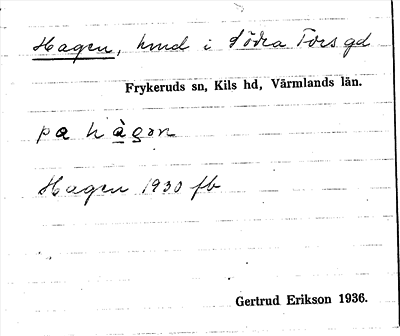 Hagen, hmd i Södra Fors gd
Frykeruds sn, Kils hd, Värmlands län.
pa hàgen
Hagen 1930 fb
Gertrud Erikson 1936.